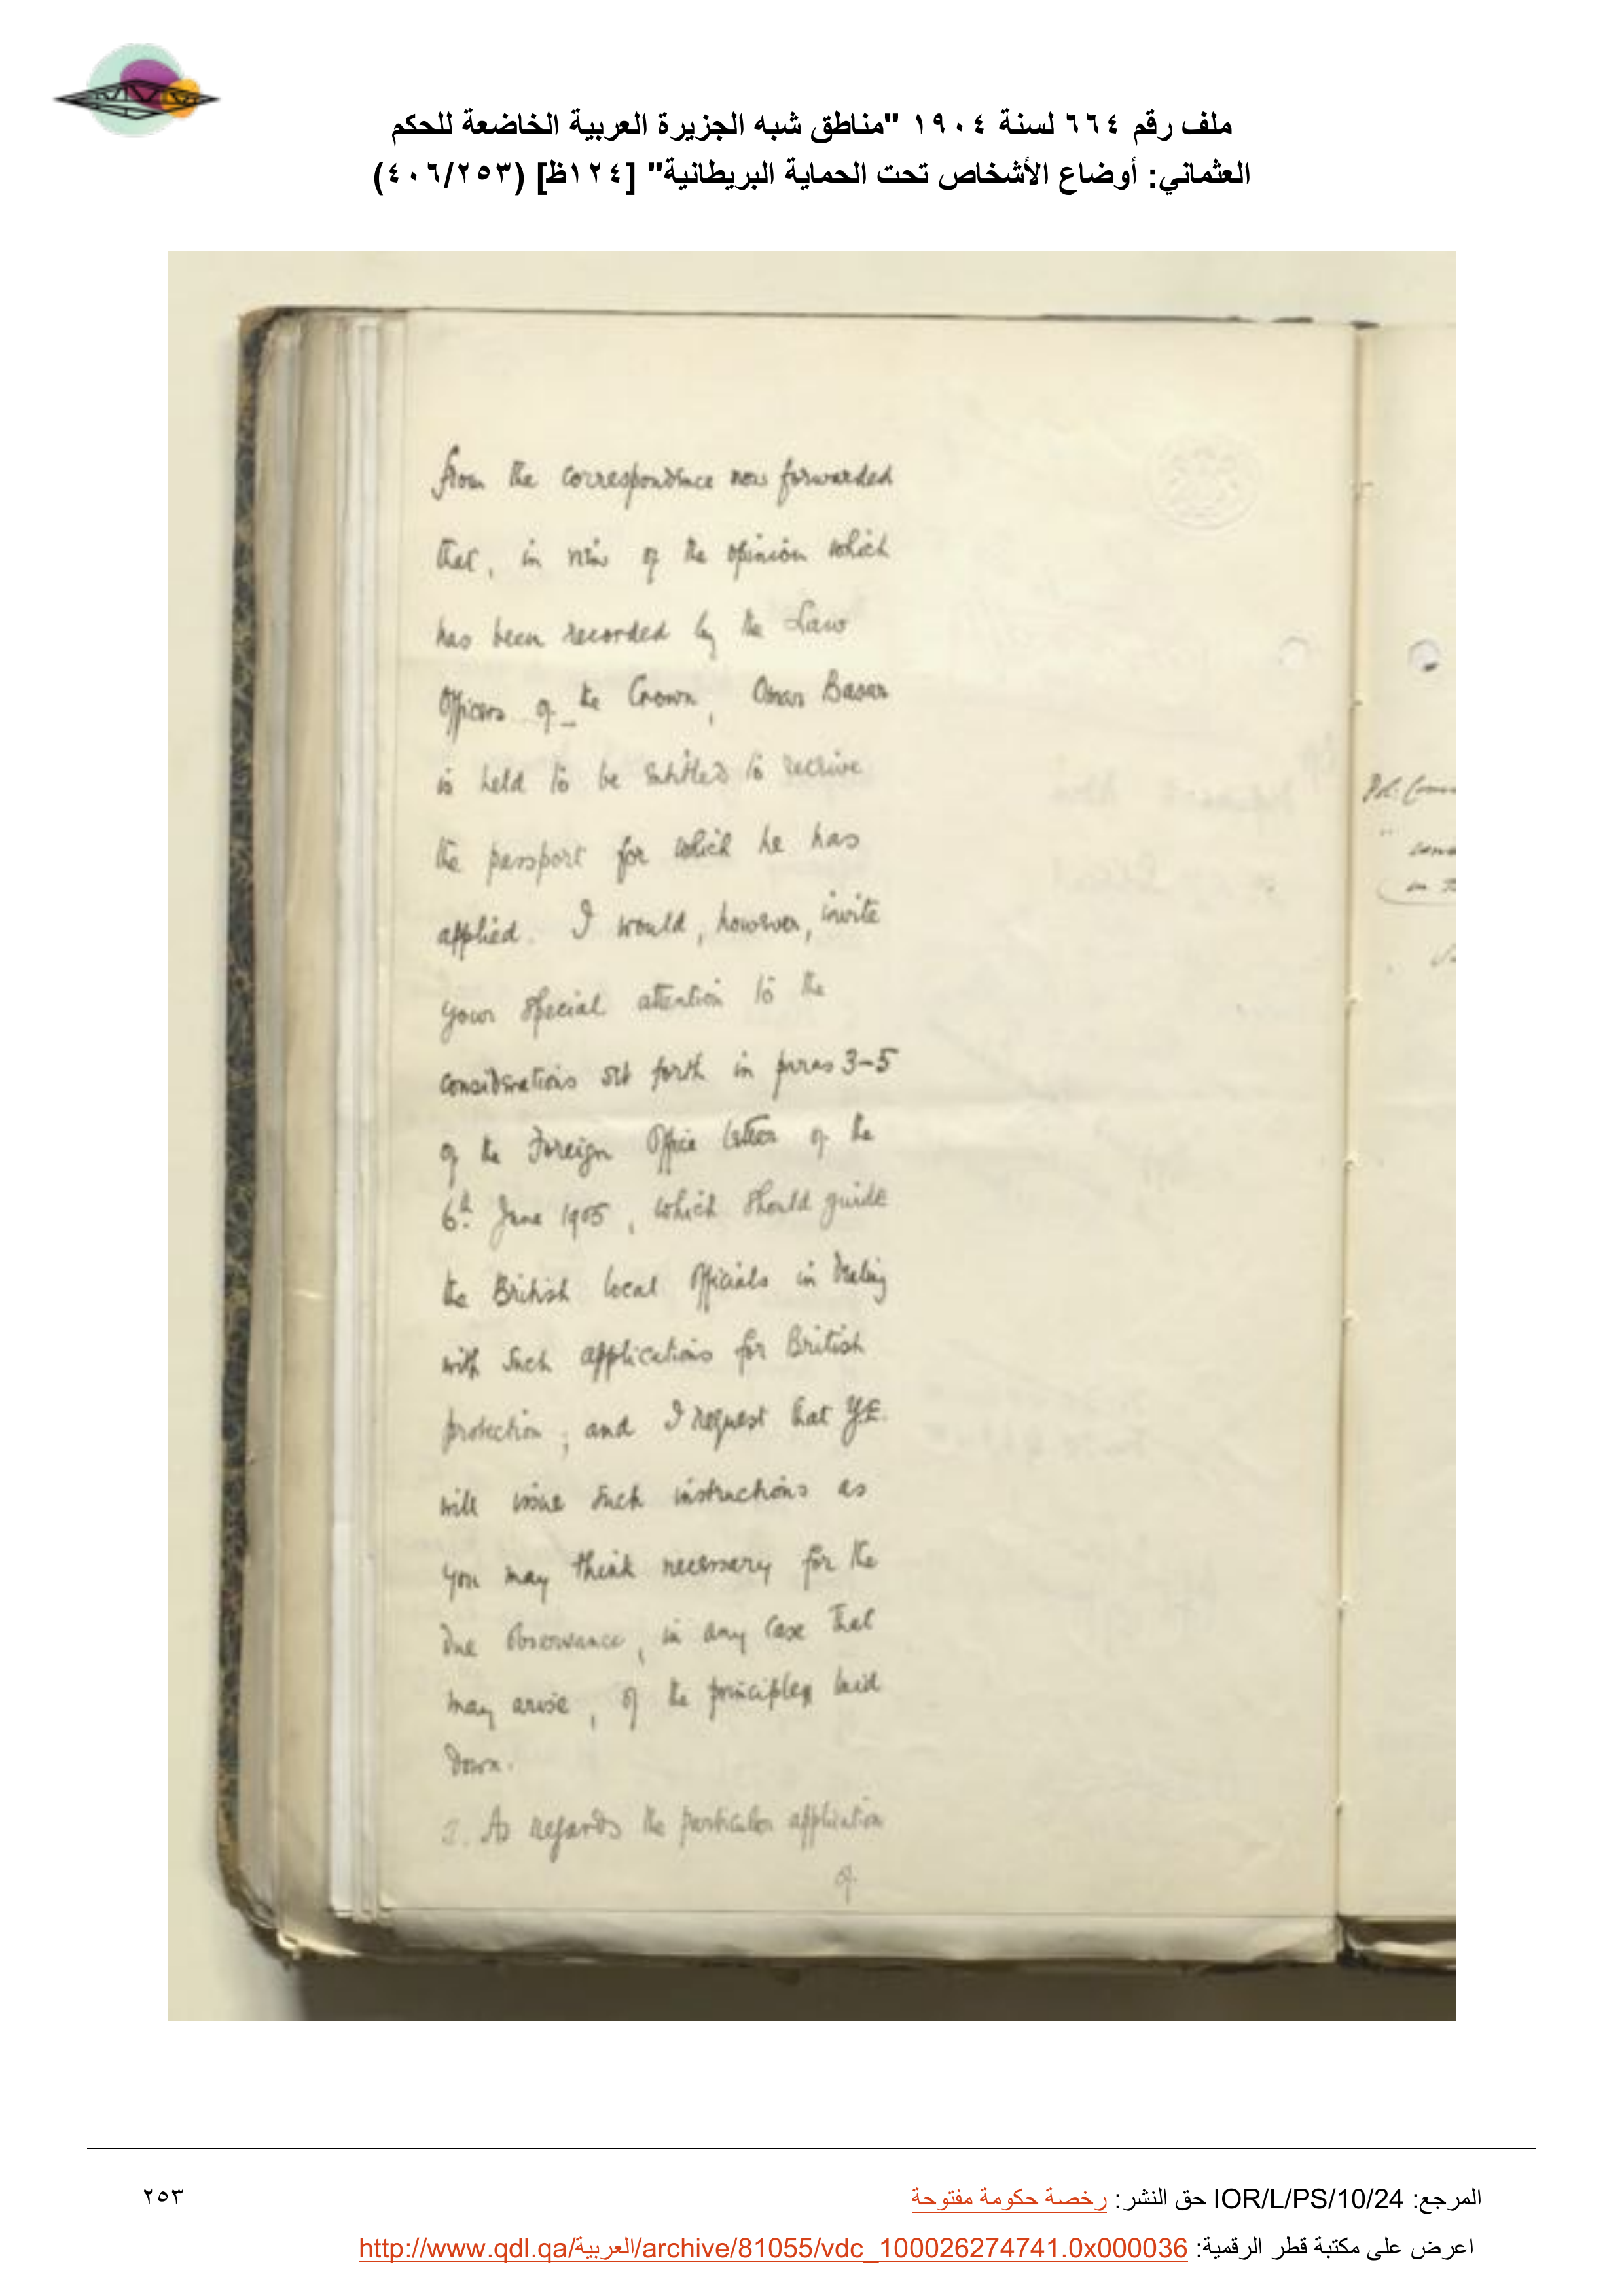 ملف رقم ٦٦٤ لسنة ١٩٠٤ "مناطق شبه الجزيرة العربية الخاضعة للحكم
العثماني: أوضاع الأشخاص تحت الحماية البريطانية" [١٢٤ظ] (٤٠٦/٢٥٣)
from the correspondence now forwarded
that, in view of the opinion which
has been recorded by the Law
Officers of the Crown, Omar Basar
is held to be entitled to receive
the passport for which he has
applied. I would, however, invite
your special attention to the
considerations set forth in paras 3-5
of the Foreign Office letter of the
6th June 1905, which should guide
the British local officials in dealing
with such applications for British
protection; and I request that Y.E.
will issue such instructions as
you may think necessary for the
due observance, in any case that
may arise, of the principles laid
down.
2. As regards the particular application
of
المرجع: IOR/L/PS/10/24 حق النشر: رخصة حكومة مفتوحة
٢٥٣
اعرض على مكتبة قطر الرقمية: http://www.qdl.qa/العربية/archive/81055/vdc_100026274741.0x000036